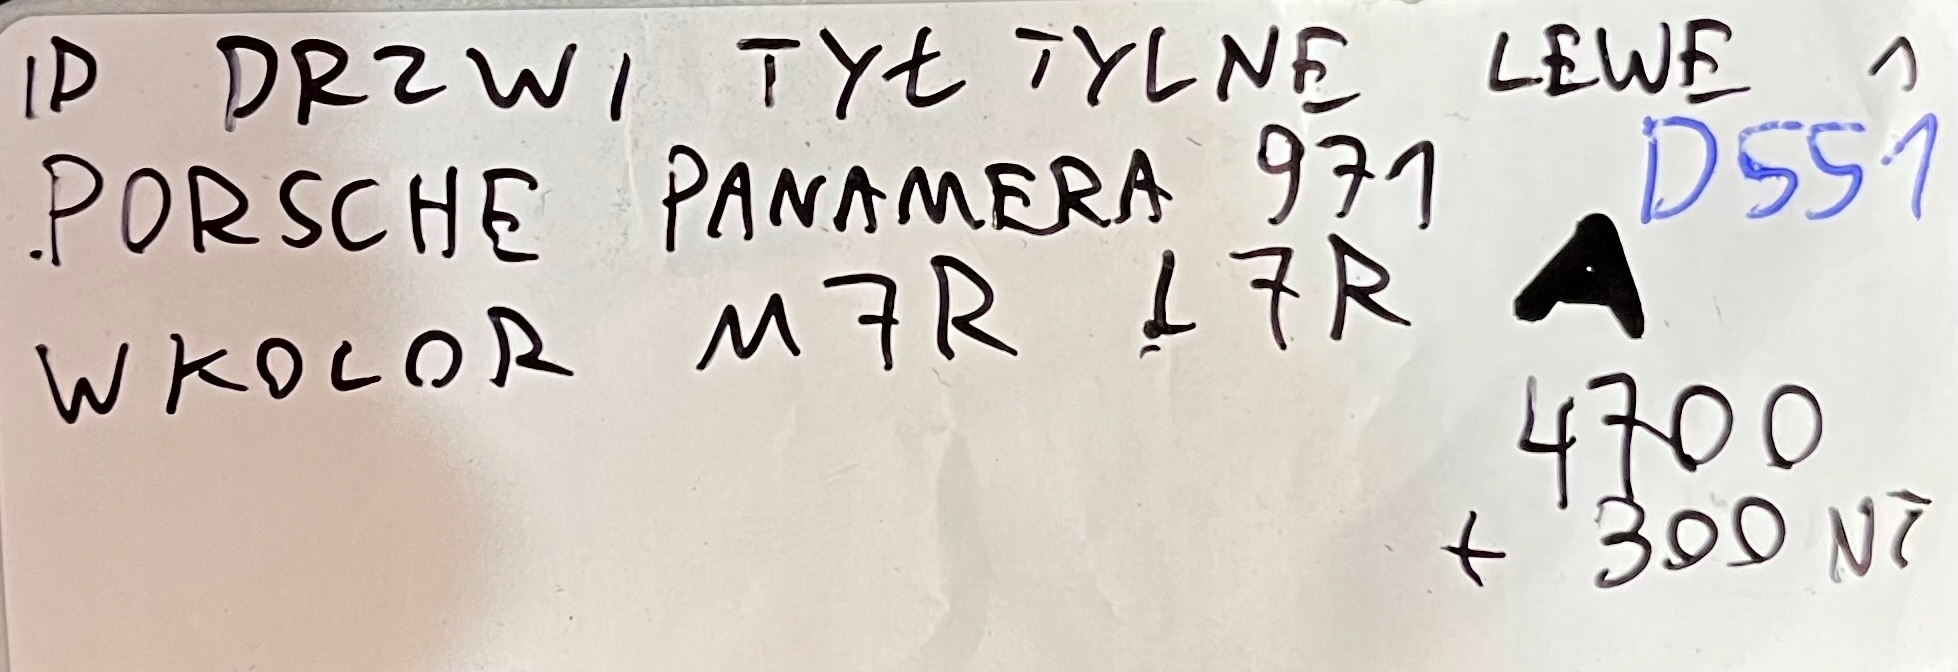 ID DRZWI TYŁ TYLNE LEWE 1
D551
PORSCHE PANAMERA 971
W KOLOR M7R L7R A
4700
+ 300 NT